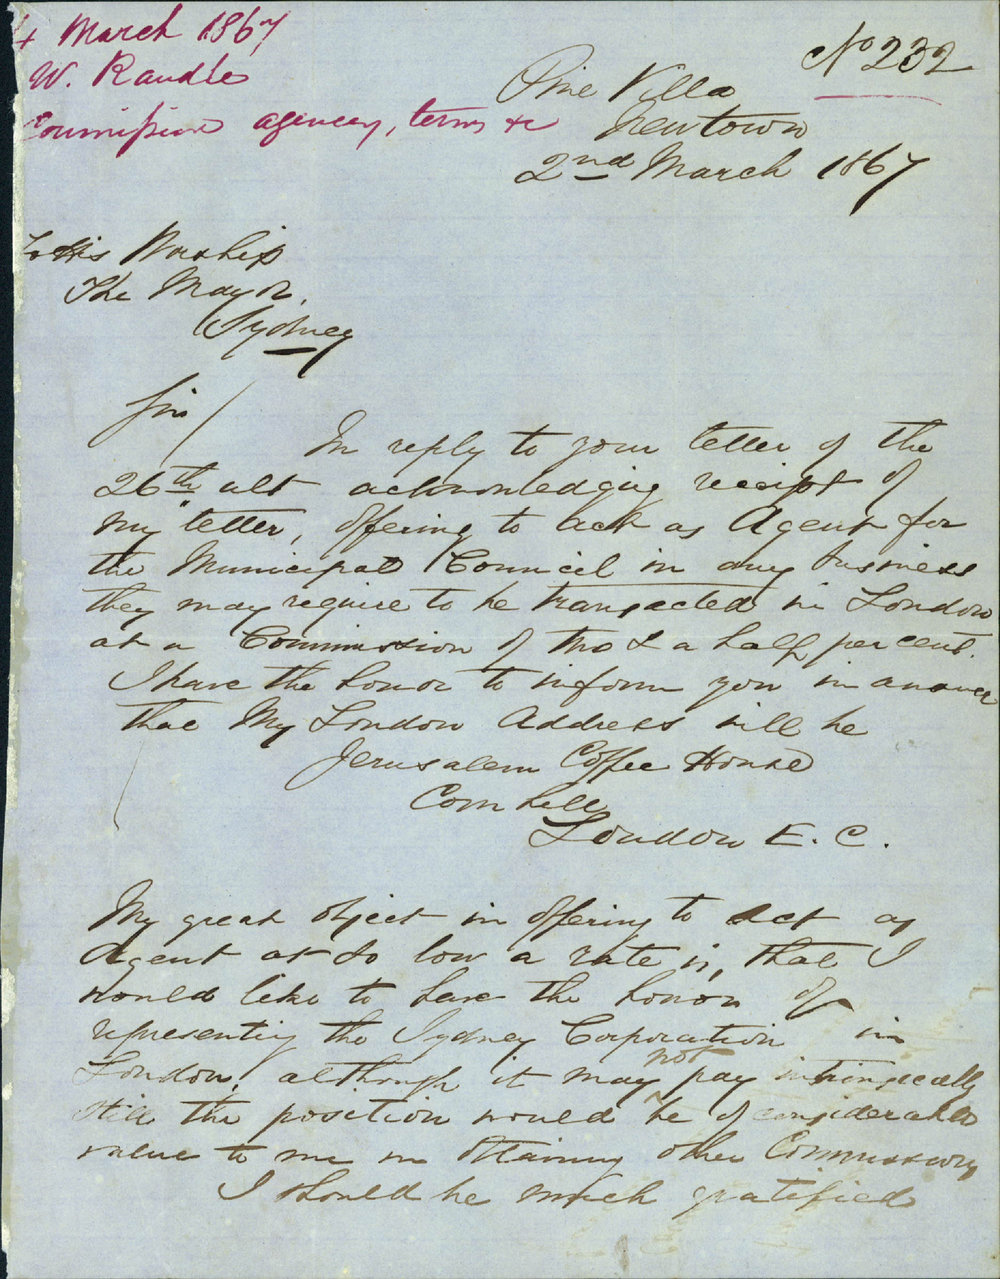 4 March 1867
W. Randle
Commission agency, terms &c
No 232
Pine Villa
Newtown
2nd March 1867
To His Worship
The Mayor,
Sydney
Sir/
In reply to your letter of the
26th ult acknowledging receipt of
my letter, offering to act as Agent for
the Municipal Council in any business
they may require to be transacted in London
at a Commission of two & a half per cent.
I have the honor to inform you in answer
that My London Address will be
Jerusalem Coffee House
Cornhill
London E. C.
My great object in offering to act as
Agent at so low a rate is, that I
would like to have the honor of
representing the Sydney Corporation in
London, although it may not pay intrinsically
still the position would be of considerable
value to me in obtaining other Commissions
I should be much gratified